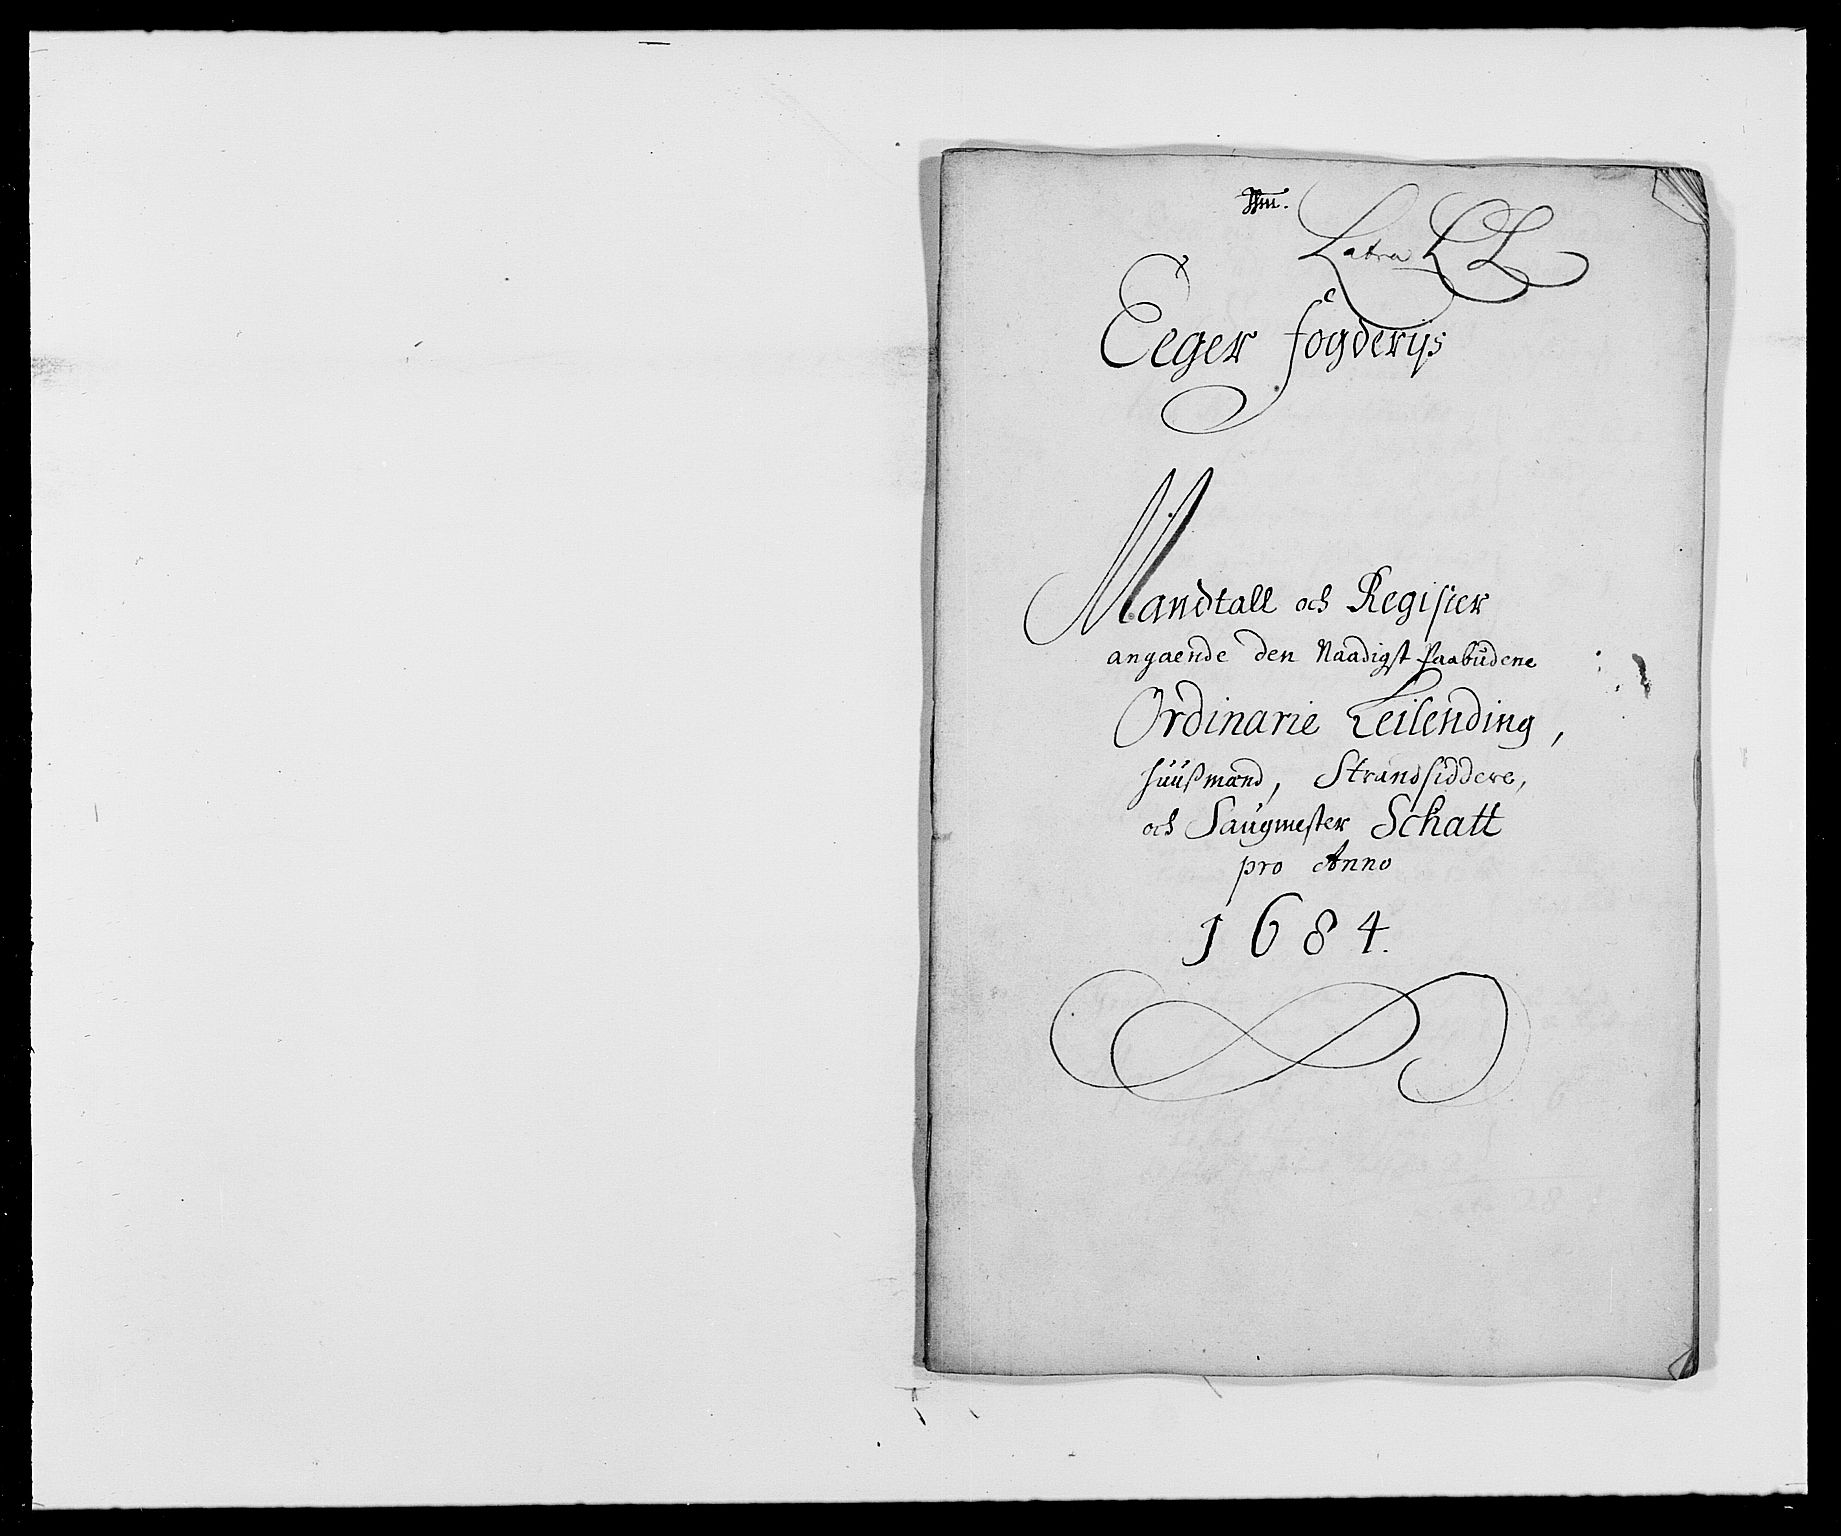 Latra LL
Eeger fogderijs
Mandtall och Register
angaende den Naadigst paabudene
Ordinarie Leilending,
huusmænd, Strandsiddere,
och Saugmester Schatt
pro Anno
1684.